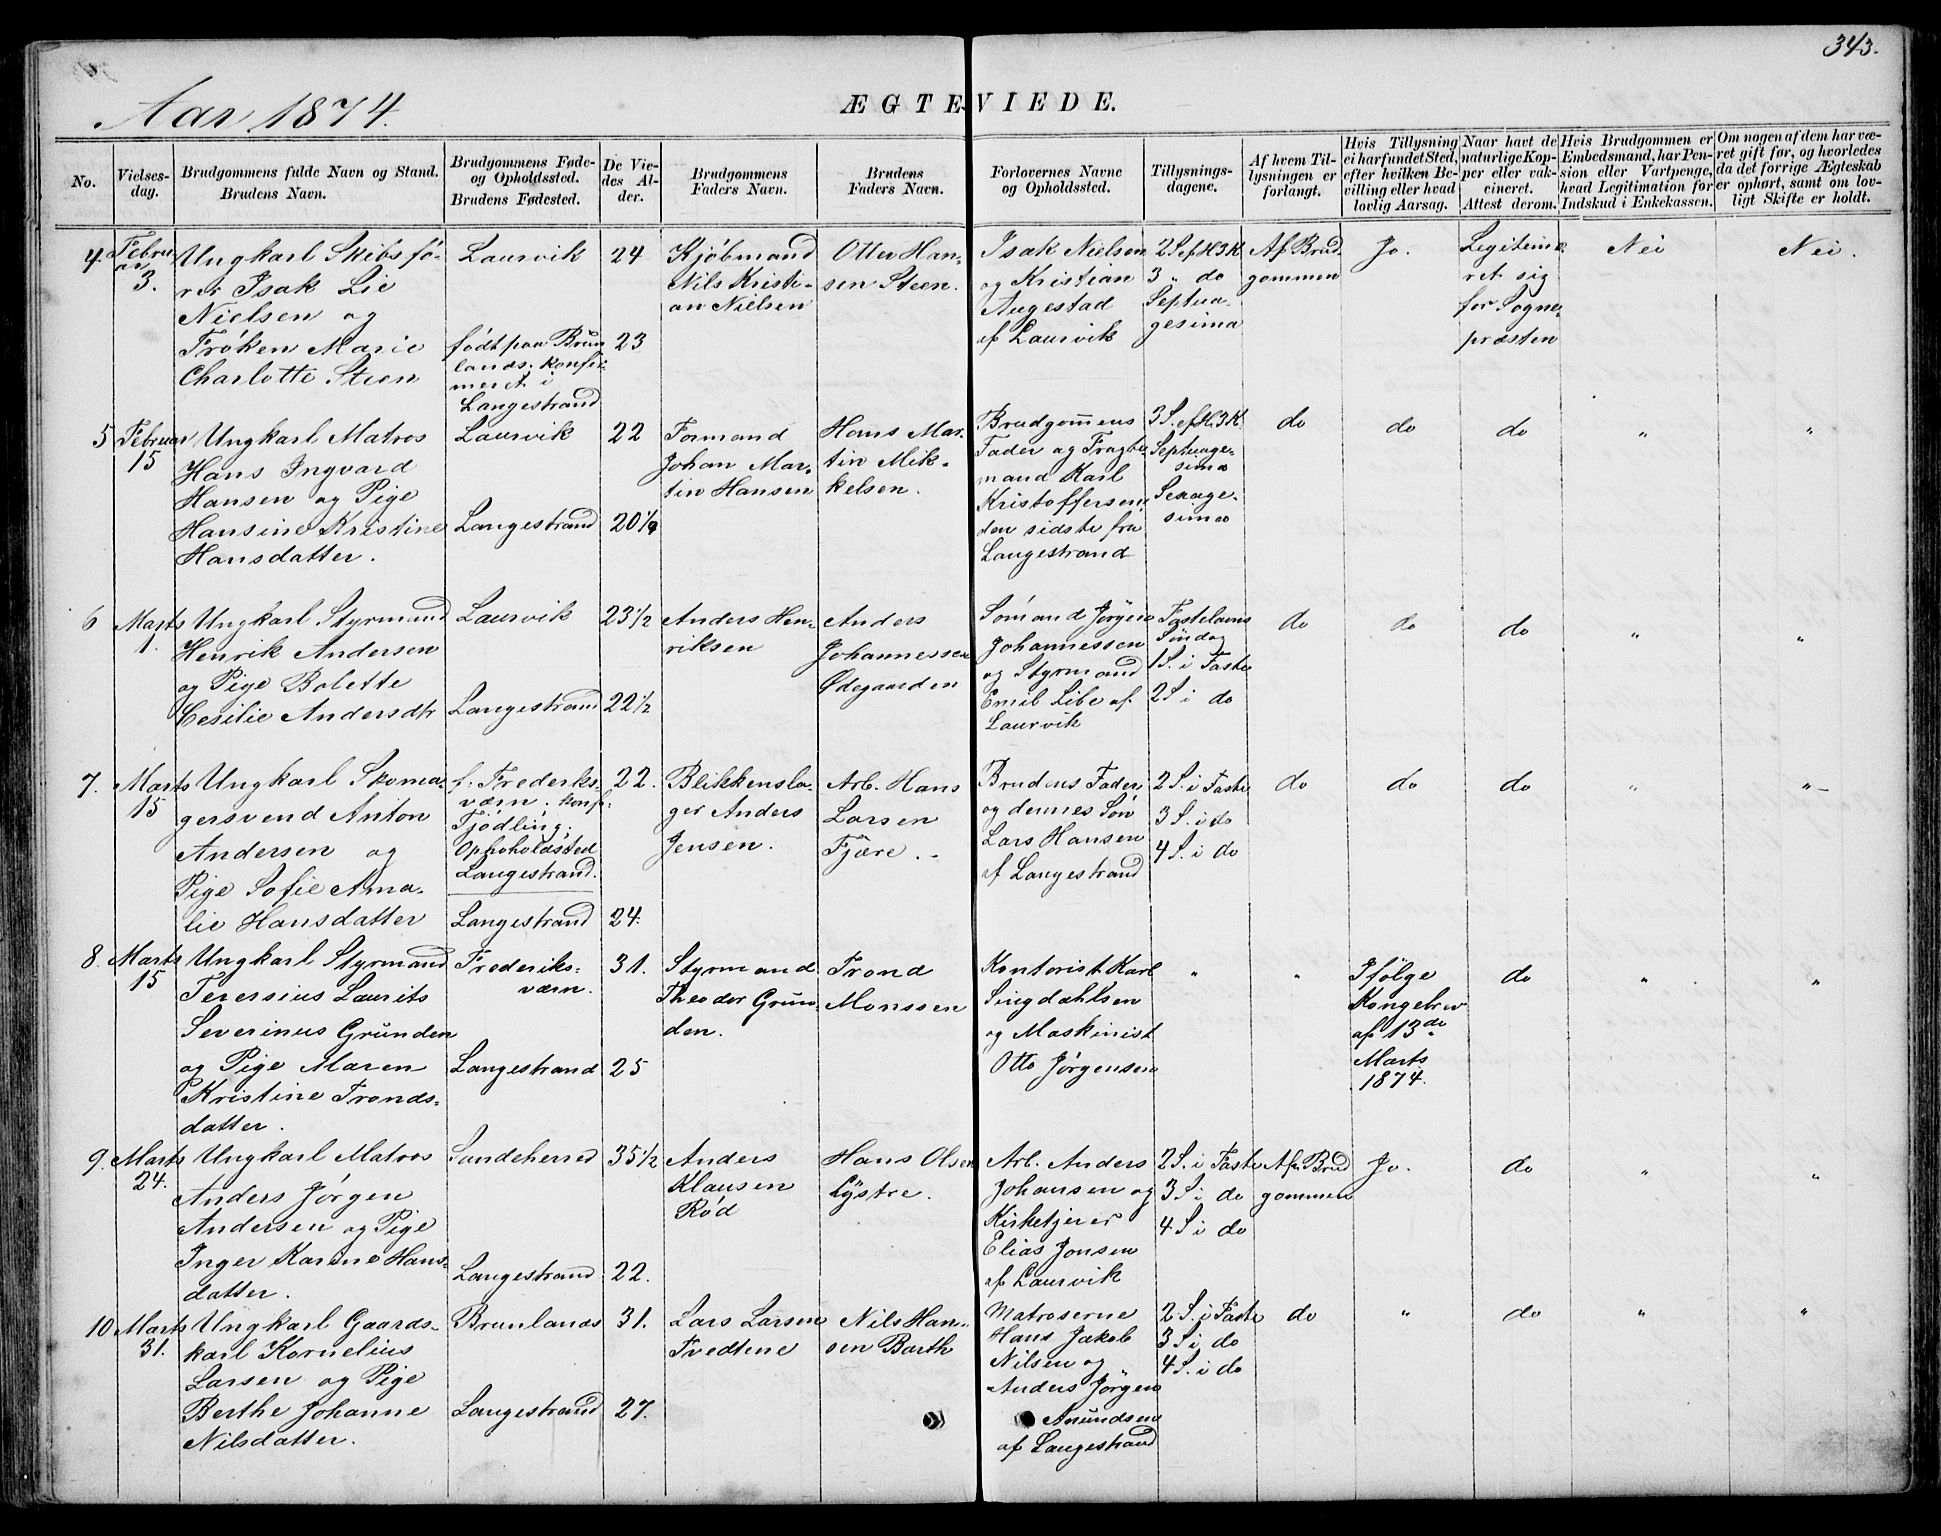 343.
Aar 1874.
ÆGTEVIEDE.
No.
Vielses-
dag.
Brudgommens fulde Navn og Stand.
Brudens Navn.
Brudgommens Føde-
og Opholdssted.
Brudens Fødested.
De Vie-
des Al-
der.
Brudgommens
Faders Navn.
Brudens
Faders Navn.
Forlovernes Navne
og Opholdssted.
Tillysnings-
dagene.
Af hvem Til-
lysningen er
forlangt.
Hvis Tillysning
ei har fundet Sted,
efter hvilken Be-
villing eller hvad
lovlig Aarsag.
Naar havt de
naturlige Kop-
per eller vak-
cineret.
Attest derom.
Hvis Brudgommen er
Embedsmand, har Pen-
sion eller Vartpenge,
hvad Legitimation for
Indskud i Enkekassen.
Om nogen af dem har væ-
ret gift før, og hvorledes
da det forrige Ægteskab
er ophørt, samt om lov-
ligt Skifte er holdt.
4.
Febru
ar
3.
Ungkarl Skibsfø-
rer Isak Lie
Nielsen og
Frøken Marie
Charlotte Steen
Laurvik
født paa Brun
lands. konfir-
meret i
Langestrand
24
23
Kjøbmand
Nils Kristi-
an Nielsen
Otter Han-
sen Steen.
Isak Nielsen
og Kristian
Augestad
af Laurvik
2 S ef H3K
3 " do
Septua-
gesima
Af Brud
gommen
Jo.
Legitime-
ret sig
for Sogne-
præsten
Nei
Nei.
5
Februar
15
Ungkarl Matros
Hans Ingvard
Hansen og Pige
Hansine Kristine
Hansdatter.
Laurvik
Langestrand
22
20 1/9
Formand
Johan Mar-
tin Hansen
Hans Mar-
tin Mik-
kelsen.
Brudgommens
Fader og Fragte
mand Karl
Kristoffersen
den sidste fra
Langestrand
3 S. ef H3K
Septuage-
sima
Sexage-
sima
do
do
do
"
"
6
Marts
1.
Ungkarl Styrmand
Henrik Andersen
og Pige Bolette
Cesilie Andersdtr
Laurvik
Langestrand
23 1/2
22 1/2
Anders Hen-
riksen
Anders
Johannessen
Ødegaarden
Sømand Jörgen
Johannessen
og Styrmand
Emil Libe af
Laurvik
Fastelavns
Søndag
1 S. i Faste
2 S. i do
do
do
do
"
"
7.
Marts
15
Ungkarl Skoma-
gersvend Anton
Andersen og
Pige Sofie Ama-
lie Hansdatter
f. Frederiks-
værn. konf.
Tjödling.
Opholdssted
Langestrand.
Langestrand
22.
24.
Blikkensla-
ger Anders
Jensen.
Arb. Hans
Larsen
Fjære.
Brudens Fader
og dennes Søn
Lars Hansen
af Langestrand
2 S. i Faste
3 S. i do
4 S. i do
do
do
do
"
"
8.
Marts
15
Ungkarl Styrmand
Teresius Laurits
Severinus Grunden
og Pige Maren
Kristine Tronds-
datter.
Frederiks-
værn.
Langestrand
31.
25
Styrmand
Theodor Grun-
den.
Trond
Monssen
Kontorist Karl
Singdahlsen
og Maskinist
Otto Jørgensen
"
"
Ifølge
Kongebrev
af 13de
Marts
1874.
do
"
"
9.
Marts
24.
Ungkarl Matros
Anders Jørgen
Andersen og Pige
Inger Karine Hans-
datter.
Sandeherred
Langestrand
35 1/2
22.
Anders
Klausen
Rød
Hans Olsen
Lystre.
Arb. Anders
Johansen og
Kirketjener
Elias Jonsen
af Laurvik
2 S. i Faste
3 S. i do
4 S. i do
Af Brud
gommen
Jo.
do
"
"
10
Marts
31.
Ungkarl Gaards-
karl Kornelius
Larsen og Pige
Berthe Johanne
Nilsdatter.
Brunlands
Langestrand
31.
27.
Lars Larsen
Tvedtene
Nils Han-
sen Barth
Matroserne
Hans Jakob
Nilsen og
Anders Jörgen
Anundsen
af Langestrand
2 S. i Faste
3 S. i do
4 S. i do
do
"
do
"
"